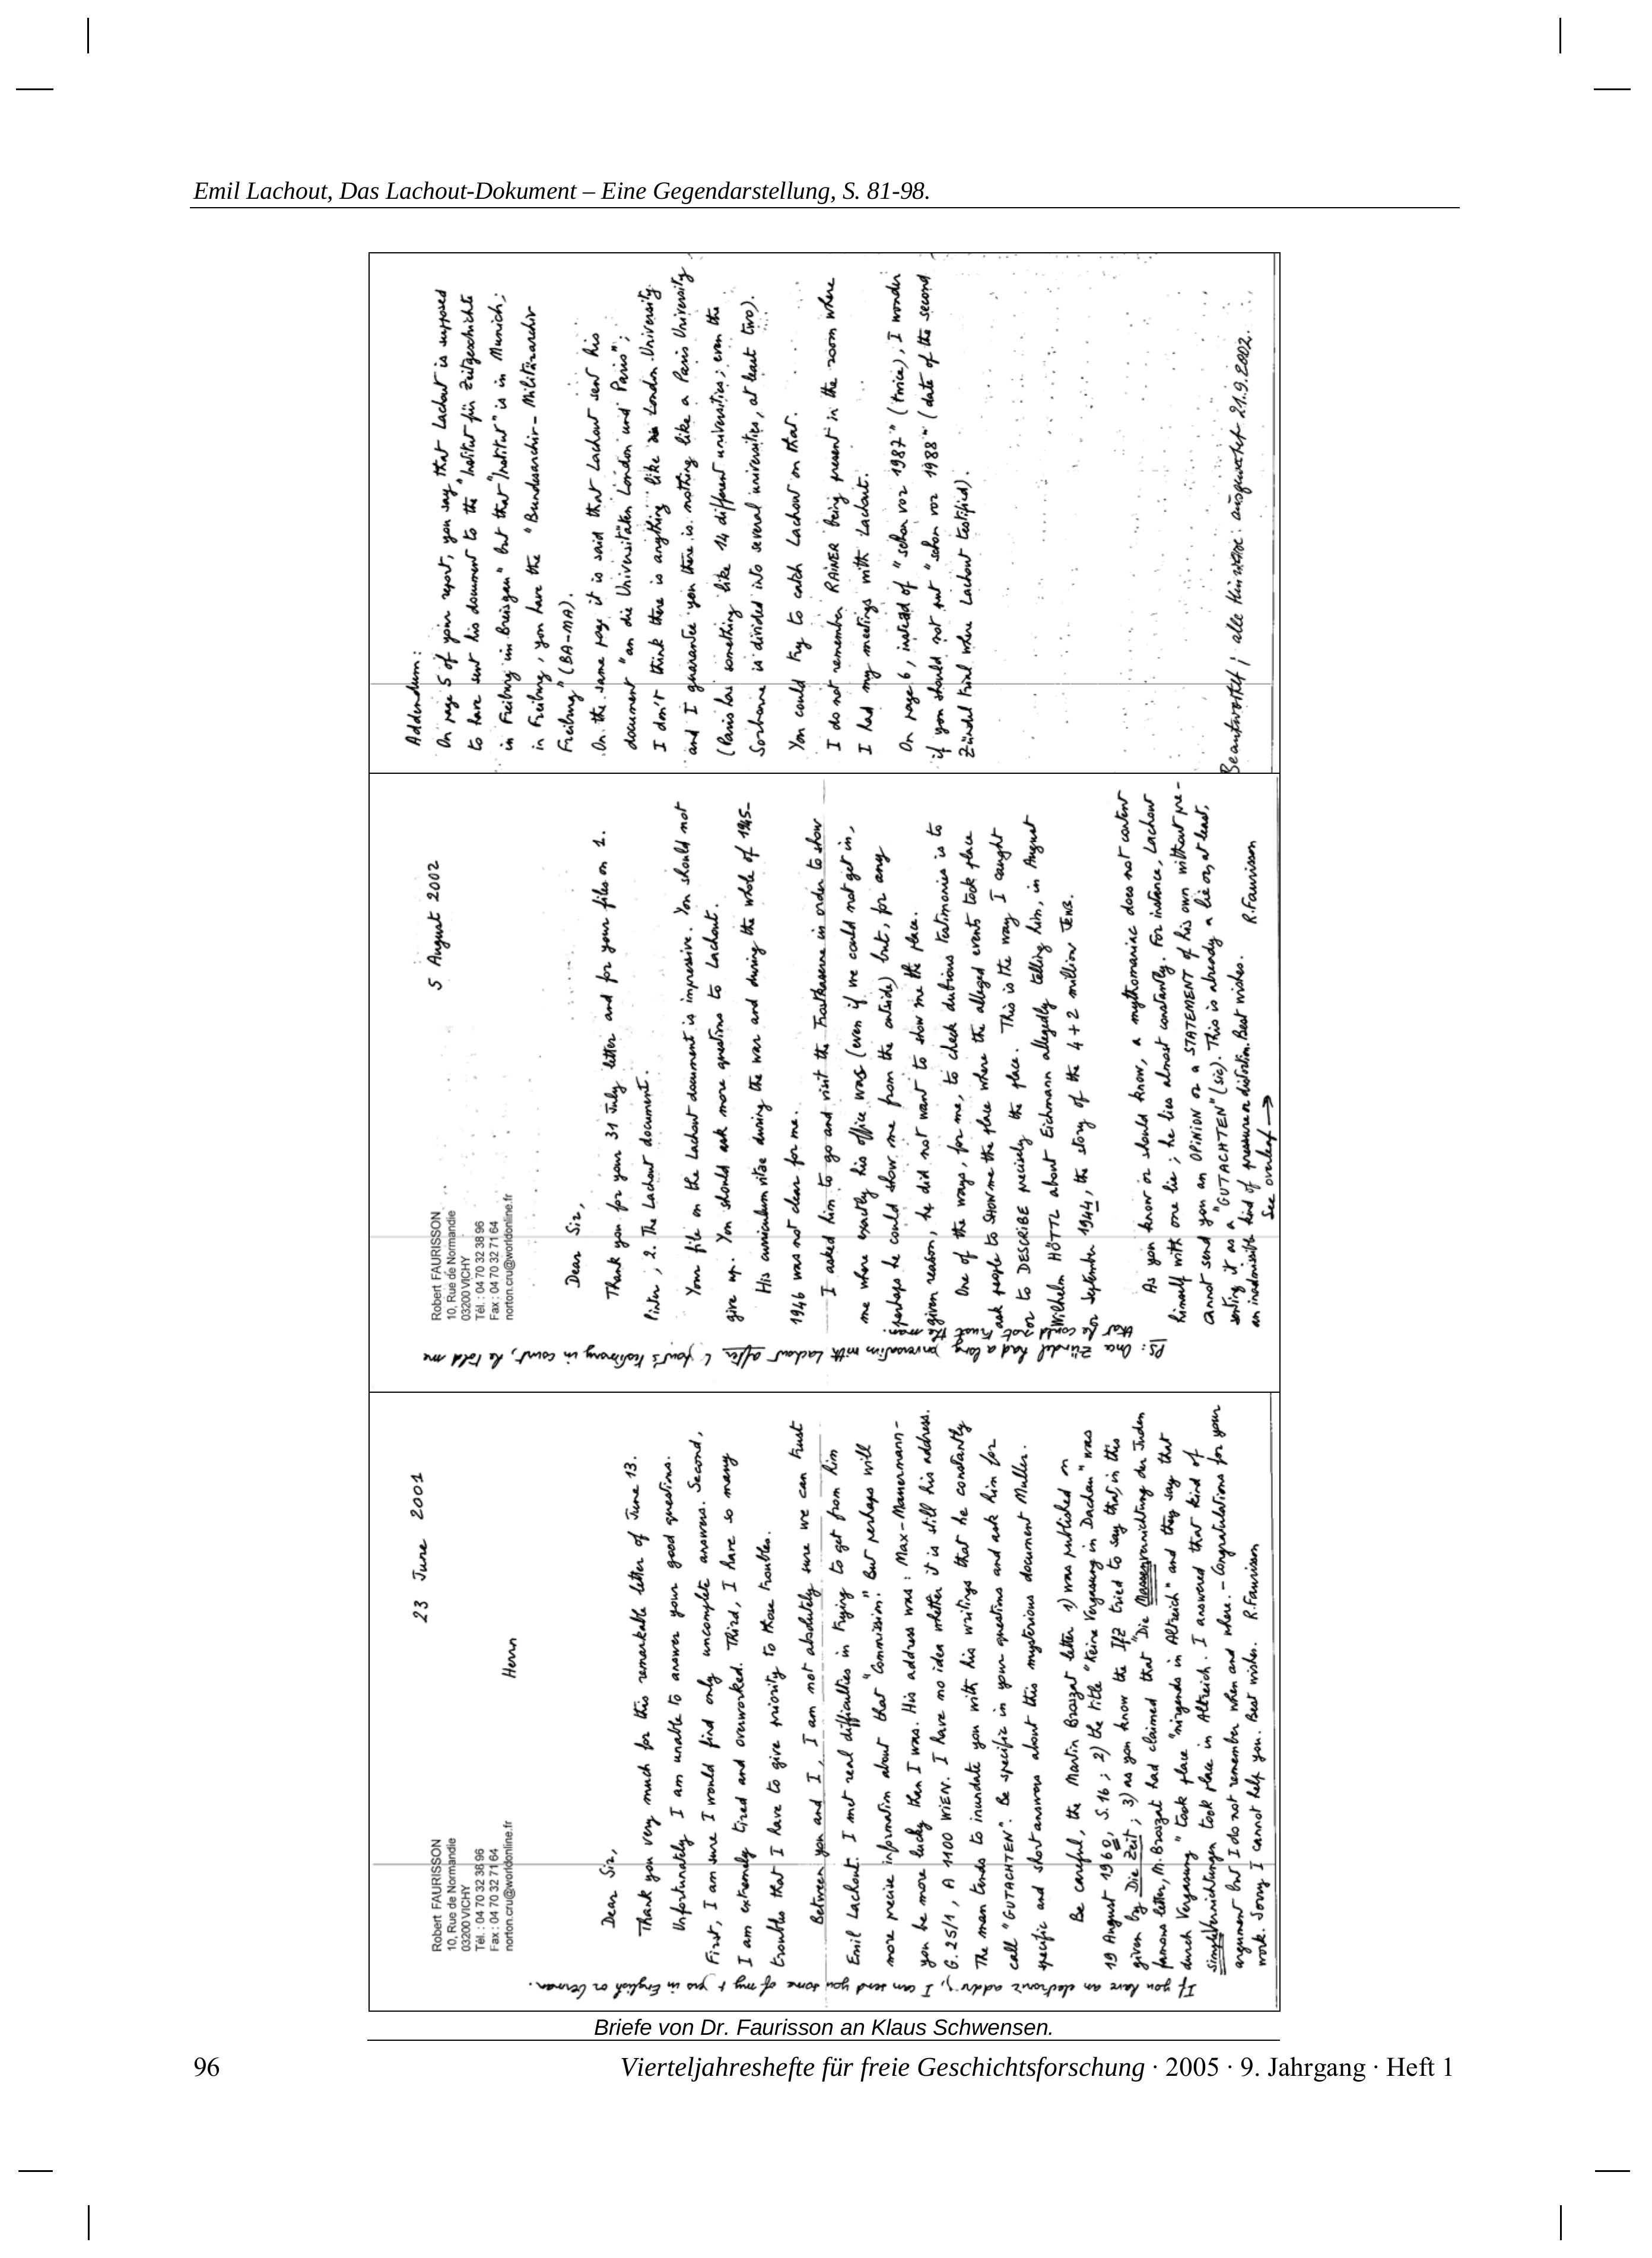 Emil Lachout, Das Lachout-Dokument – Eine Gegendarstellung, S. 81-98.
Robert FAURISSON
10, Rue de Normandie
03200 VICHY
Tél. : 04 70 32 38 96
Fax : 04 70 32 71 64
norton.cru@worldonline.fr
23 June 2001
Herrn
Dear Sir,
Thank you very much for this remarkable letter of June 13.
Unfortunately I am unable to answer your good questions.
First, I am sure I would find only uncomplete answers. Second,
I am extremely tired and overworked. Third, I have so many
troubles that I have to give priority to those troubles.
Between you and I, I am not absolutely sure we can trust
Emil Lachout. I met real difficulties in trying to get from him
more precise information about that "Commission." But perhaps will
you be more lucky then I was. His address was : Max-Mauermann-
G. 25/1, A 1100 WIEN. I have no idea whether it is still his address.
The man tends to inundate you with his writings that he constantly
call "GUTACHTEN". Be specific in your questions and ask him for
specific and short answers about this mysterious document Müller.
Be careful, the Martin Broszat letter 1) was published on
19 August 1960, S. 16 ; 2) the title "Keine Vergasung in Dachau" was
given by Die Zeit ; 3) as you know the IfZ tried to say that, in this
famous letter, M. Broszat had claimed that "Die Massenvernichtung der Juden
durch Vergasung" took place "nirgends in Altreich" and they say that
simple Vernichtungen took place in Altreich. I answered that kind of
argument but I do not remember when and where. – Congratulations for your
work. Sorry I cannot help you. Best wishes. R. Faurisson
If you have an electronic address, I can send you some of my in English or German.
Robert FAURISSON
10, Rue de Normandie
03200 VICHY
Tél. : 04 70 32 38 96
Fax : 04 70 32 71 64
norton.cru@worldonline.fr
5 August 2002
Dear Sir,
Thank you for your 31 July letter and for your files on 1.
Pinter ; 2. The Lachout document.
Your file on the Lachout document is impressive. You should not
give up. You should ask more questions to Lachout.
His curriculum vitae during the war and during the whole of 1945-
1946 was not clear for me.
I asked him to go and visit the Trostkaserne in order to show
me where exactly his office was (even if we could not get in,
perhaps he could show me from the outside) but, for any
given reason, he did not want to show me the place.
One of the ways, for me, to check dubious testimonies is to
ask people to SHOW me the place where the alleged events took place
or to DESCRIBE precisely the place. This is the way I caught
Wilhelm HÖTTL about Eichmann allegedly telling him, in August
or September 1944, the story of the 4 + 2 million JEWS.
As you know or should know, a mythomaniac does not content
himself with one lie ; he lies almost constantly. For instance, Lachout
cannot send you an OPINION or a STATEMENT of his own without pre-
senting it as a "GUTACHTEN" (sic). This is already a lie or, at least,
an inadmissible kind of pressure or distortion. Best wishes. R. Faurisson
See overleaf →
PS: Once Zündel had a long conversation with Lachout after testimony in court, he told me
that he could not trust the man.
Addendum :
On page 5 of your report, you say that Lachout is supposed
to have sent his document to the "Institut für Zeitgeschichte
in Freiburg im Breisgau" but that "Institut" is in Munich ;
in Freiburg, you have the "Bundesarchiv – Militärarchiv
Freiburg" (BA-MA).
On the same page it is said that Lachout sent his
document "an die Universitäten London und Paris" ;
I don't think there is anything like London University
and I guarantee you there is nothing like a Paris University
(Paris has something like 14 different universities ; even the
Sorbonne is divided into several universities, at least two).
You could try to catch Lachout on that.
I do not remember RAINER being present in the room where
I had my meetings with Lachout.
On page 6, instead of "schon vor 1987" (twice), I wonder
if you should not put "schon vor 1988" (date of the second
Zündel trial where Lachout testified).
Beantwortet ; alle Hinweise ausgewertet 21.9.2002.
Briefe von Dr. Faurisson an Klaus Schwensen.
96
Vierteljahreshefte für freie Geschichtsforschung · 2005 · 9. Jahrgang · Heft 1